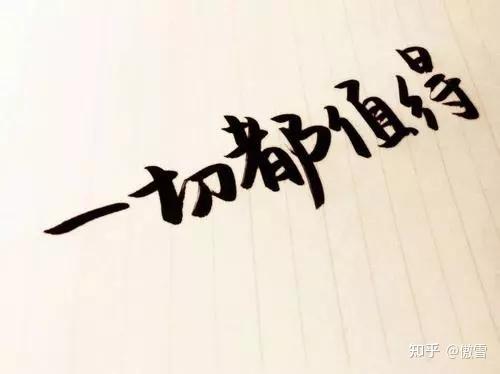 一切都值得
知乎 @傲雪